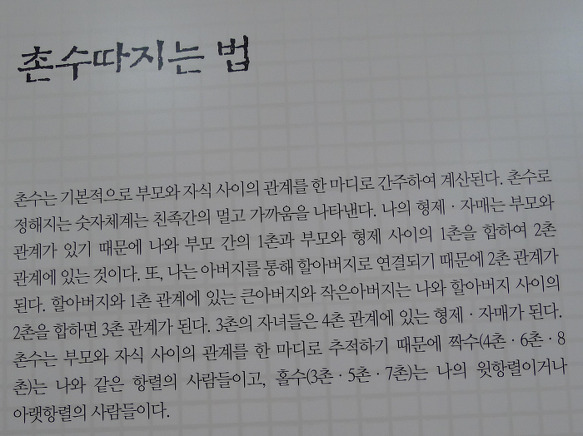 촌수따지는 법
촌수는 기본적으로 부모와 자식 사이의 관계를 한 마디로 간주하여 계산된다. 촌수로
정해지는 숫자체계는 친족간의 멀고 가까움을 나타낸다. 나의 형제 · 자매는 부모와
관계가 있기 때문에 나와 부모 간의 1촌과 부모와 형제 사이의 1촌을 합하여 2촌
관계에 있는 것이다. 또, 나는 아버지를 통해 할아버지로 연결되기 때문에 2촌 관계가
된다. 할아버지와 1촌 관계에 있는 큰아버지와 작은아버지는 나와 할아버지 사이의
2촌을 합하면 3촌 관계가 된다. 3촌의 자녀들은 4촌 관계에 있는 형제 · 자매가 된다.
촌수는 부모와 자식 사이의 관계를 한 마디로 추적하기 때문에 짝수(4촌 · 6촌 · 8
촌)는 나와 같은 항렬의 사람들이고, 홀수(3촌 · 5촌 · 7촌)는 나의 윗항렬이거나
아랫항렬의 사람들이다.